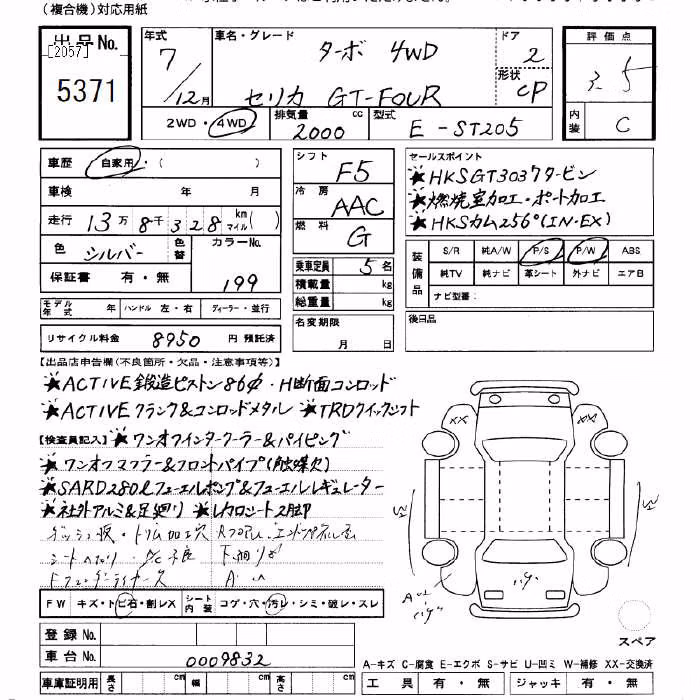 (複合機)対応用紙
出品No.
[2057]
5371
年式 7 / 12 月
車名・グレード ターボ 4WD
セリカ GT-FOUR
ドア 2
形状 CP
2WD・4WD 排気量 2000 cc 型式 E-ST205
評価点 3.5
内装 C
車歴 自家用・( )
車検 年 月
走行 13万 8千 328 km マイル ( )
色 シルバー 色替 カラーNo. 199
保証書 有・無
モデル年式 年 ハンドル 左・右 ディーラー・並行
リサイクル料金 8950 円 預託済
シフト F5
冷房 AAC
燃料 G
乗車定員 5 名
積載量 kg
総重量 kg
名変期限 月 日
セールスポイント
★HKS GT3037タービン
★燃焼室加工・ポート加工
★HKSカム256°(IN-EX)
装備品 S/R 純A/W P/S P/W ABS
純TV 純ナビ 革シート 外ナビ エアB
ナビ型番:
後日品
【出品店申告欄(不良箇所・欠品・注意事項等)】
★ACTIVE鍛造ピストン86φ・H断面コンロッド
★ACTIVEクランク&コンロッドメタル ★TRDクイックシフト
【検査員記入】★ワンオフインタークーラー&パイピング
★ワンオフマフラー&フロントパイプ(触媒欠)
★SARD280ℓフューエルポンプ&フューエルレギュレーター
★社外アルミ&足廻り ★レカロシート2脚
ダッシュ板・トリム加工穴
シートヘタリ・A/C不良 下廻りサビ
FW キズ・トビ石・割レX シート内装 コゲ・穴・汚レ・シミ・破レ・スレ
登録No.
車台No. 0009832
車庫証明用 長さ cm 幅 cm 高さ cm
XX XX
スペア
A-キズ C-腐食 E-エクボ S-サビ U-凹ミ W-補修 XX-交換済
工具 有・無 ジャッキ 有・無